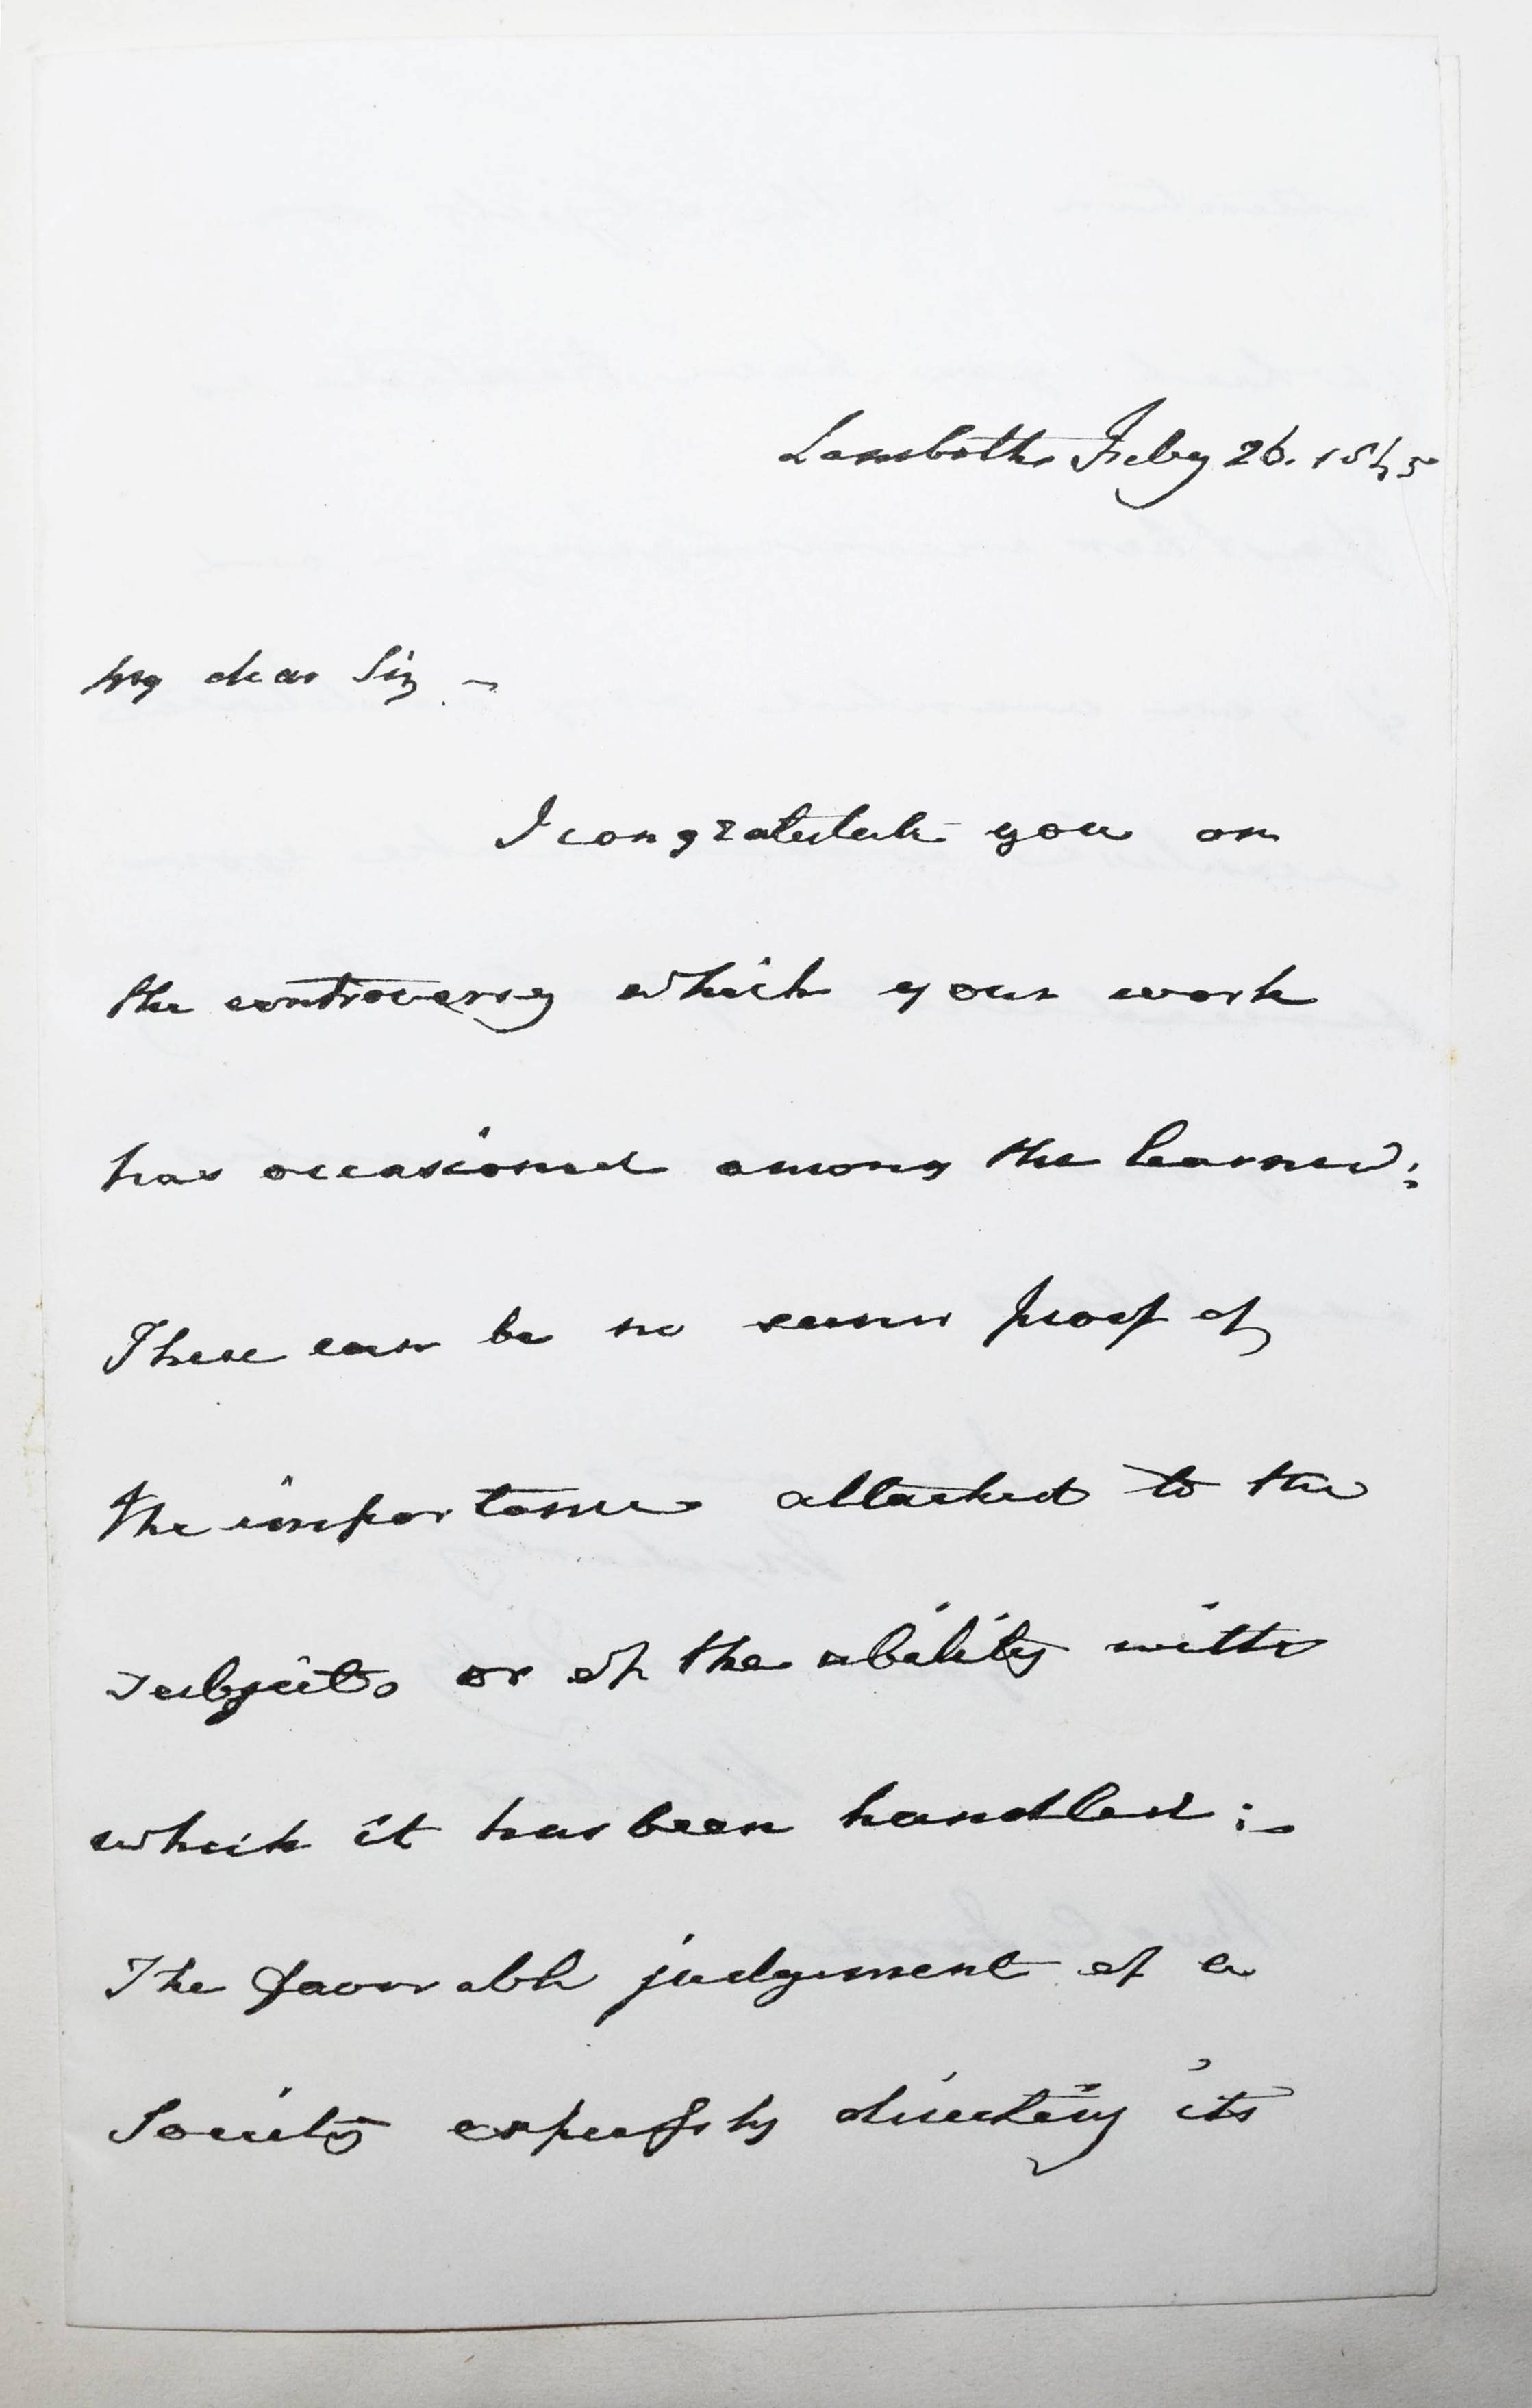 Lambeth Feby 26. 1845
My dear Sir, -
I congratulate you on
the controversy which your work
has occasioned among the learned:
There can be no surer proof of
the importance attached to the
subject, or of the ability with
which it has been handled: -
The favorable judgement of a
Society expressly directing its